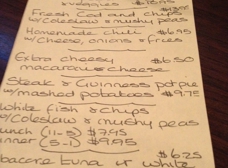 w/veggies $18.95
Fresh Cod and chips
w/coleslaw & mushy peas
Homemade chili $6.95
w/cheese, onions & fries
Extra cheesy $6.50
macaroni & cheese
Steak & Guinness pot pie
w/mashed potatoes $9.75
White fish & chips
w/coleslaw & mushy peas
unch (11-5) $7.95
inner (5-1) $9.95
bacore tuna or white
$6.25